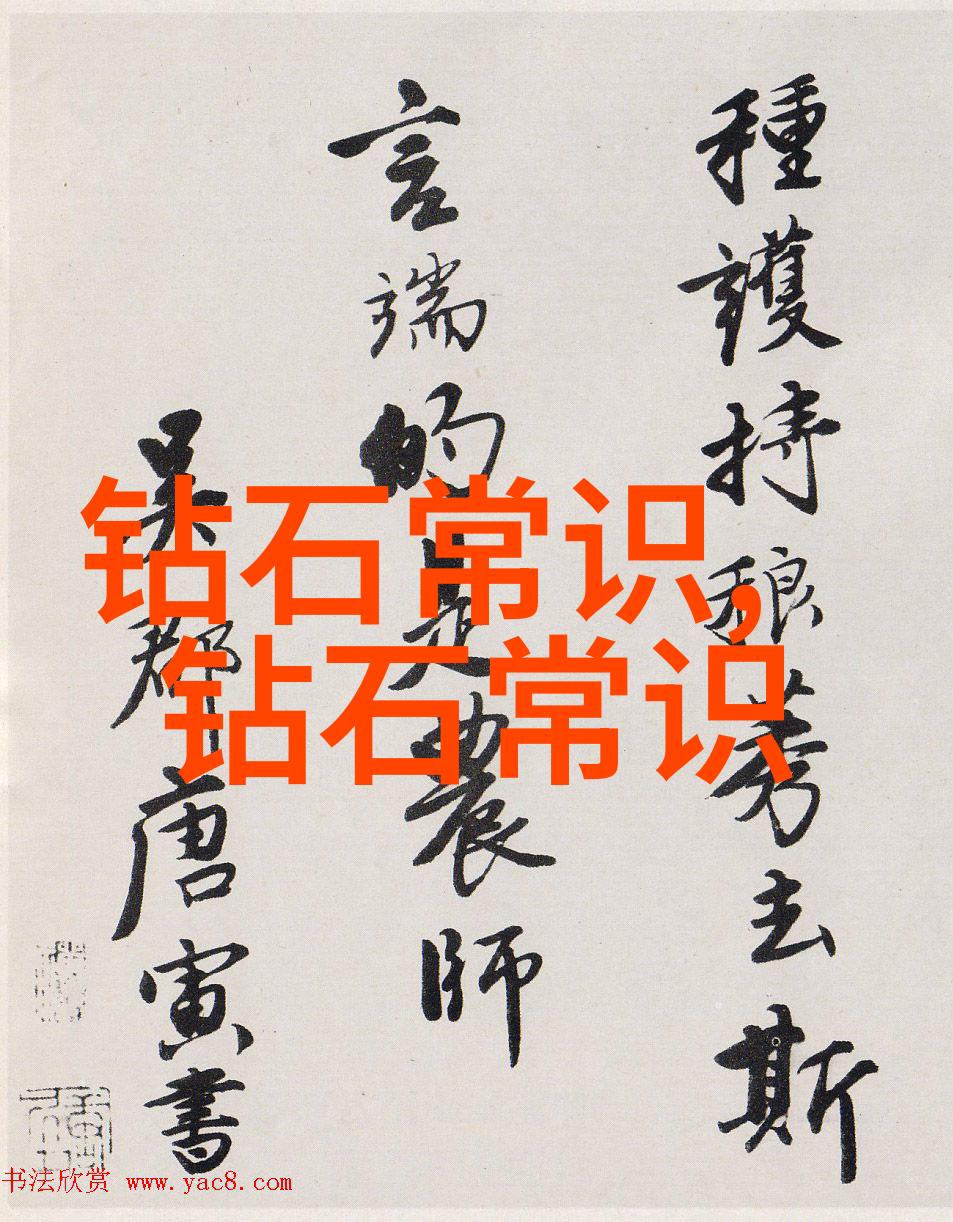 種護持稂莠去斯
言端的是農師
吳郡唐寅書
钻石常识,
钻石常识
书法欣赏 www.yac8.com